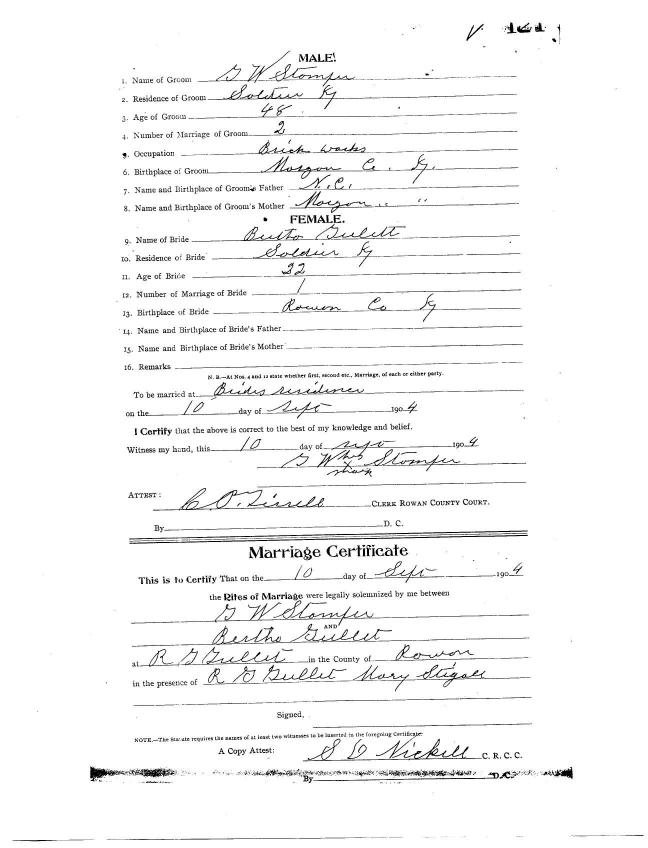 V 161
MALE.
1. Name of Groom G W Stamper
2. Residence of Groom Soldier Ky
3. Age of Groom 48
4. Number of Marriage of Groom 2
5. Occupation Brick works
6. Birthplace of Groom Morgan Co. Ky.
7. Name and Birthplace of Groom's Father N.C.
8. Name and Birthplace of Groom's Mother Morgan " "
FEMALE.
9. Name of Bride Bertha Gullett
10. Residence of Bride Soldier Ky
11. Age of Bride 22
12. Number of Marriage of Bride 1
13. Birthplace of Bride Rowan Co Ky
14. Name and Birthplace of Bride's Father
15. Name and Birthplace of Bride's Mother
16. Remarks
N. B.—At Nos. 4 and 12 state whether first, second etc., Marriage, of each or either party.
To be married at Brides residence
on the 10 day of Sept 1904
I Certify that the above is correct to the best of my knowledge and belief.
Witness my hand, this 10 day of Sept 1904
G W his x mark Stamper
ATTEST: CLERK ROWAN COUNTY COURT.
By D. C.
Marriage Certificate
This is to Certify That on the 10 day of Sept 1904
the Rites of Marriage were legally solemnized by me between
G W Stamper
AND
Bertha Gullet
at R G Gullet in the County of Rowan
in the presence of R G Gullet Mary Stigall
Signed,
NOTE.—The Statute requires the names of at least two witnesses to be inserted in the foregoing Certificate.
A Copy Attest: C. R. C. C.
By D.C.